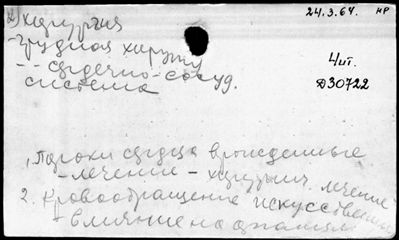 2) Хирургия
24.3.64. НР
- грудная хирург
-- сердечно-сосуд.
система
4шт.
Д30722
1. Пороки сердца врожденные
- лечение - хирургич. лечение
2. Кровообращение искусственное
- влияние на организм